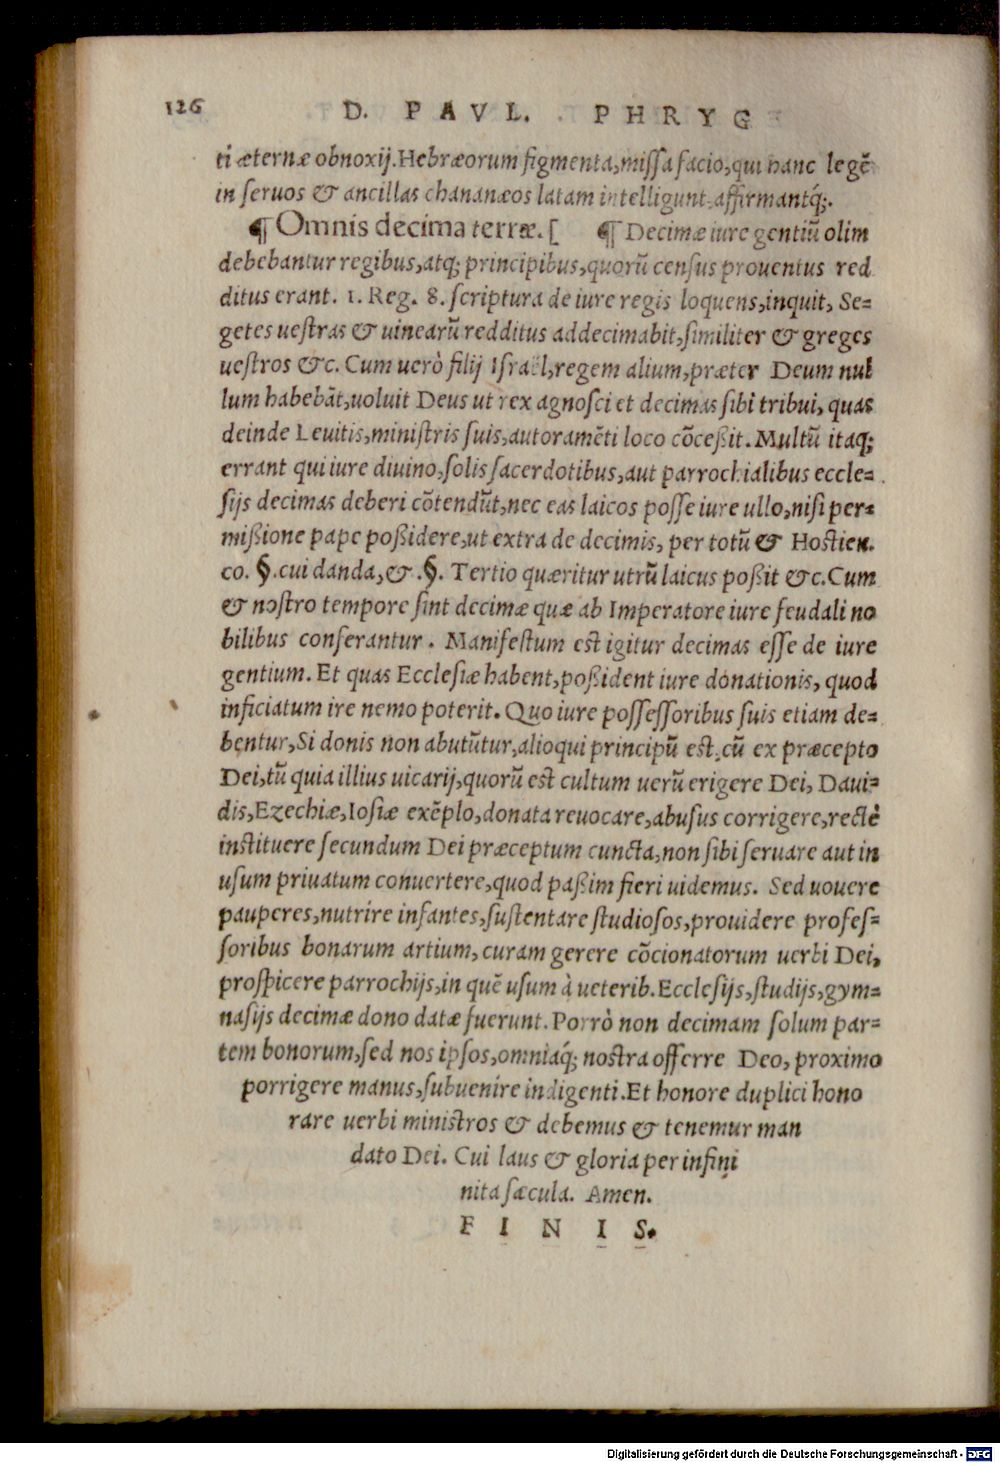 126 D. PAVL. PHRYG
ti æternæ obnoxij. Hebræorum figmenta, missa facio, qui hanc legẽ
in seruos & ancillas chananæos latam intelligunt, affirmantq́;.
¶ Omnis decima terræ. [ ¶ Decimæ iure gentiũ olim
debebantur regibus, atq; principibus, quorũ census prouentus red
ditus erant. 1. Reg. 8. scriptura de iure regis loquens, inquit, Se-
getes uestras & uinearũ redditus addecimabit, similiter & greges
uestros &c. Cum uerò filij Israël, regem alium, præter Deum nul
lum habebãt, uoluit Deus ut rex agnosci et decimas sibi tribui, quas
deinde Leuitis, ministris suis, autoramẽti loco cõceßit. Multũ itaq;
errant qui iure diuino, solis sacerdotibus, aut parrochialibus eccle-
sijs decimas deberi cõtendũt, nec eas laicos posse iure ullo, nisi per-
mißione pape poßidere, ut extra de decimis, per totũ & Hostien.
co. §. cui danda, & .§. Tertio quæritur utrũ laicus poßit &c. Cum
& nostro tempore sint decimæ quæ ab Imperatore iure feudali no
bilibus conferantur. Manifestum est igitur decimas esse de iure
gentium. Et quas Ecclesiæ habent, poßident iure donationis, quod
inficiatum ire nemo poterit. Quo iure possessoribus suis etiam de-
bentur, Si donis non abutũtur, alioqui principũ est, cũ ex præcepto
Dei, tũ quia illius uicarij, quorũ est cultum uerũ erigere Dei, Daui-
dis, Ezechiæ, Iosiæ exẽplo, donata reuocare, abusus corrigere, rectè
instituere secundum Dei præceptum cuncta, non sibi seruare aut in
usum priuatum conuertere, quod paßim fieri uidemus. Sed uouere
pauperes, nutrire infantes, sustentare studiosos, prouidere profes-
soribus bonarum artium, curam gerere cõcionatorum uerbi Dei,
prospicere parrochijs, in quẽ usum à ueterib. Ecclesijs, studijs, gym-
nasijs decimæ dono datæ fuerunt. Porrò non decimam solum par-
tem bonorum, sed nos ipsos, omniaq́; nostra offerre Deo, proximo
porrigere manus, subuenire indigenti. Et honore duplici hono
rare uerbi ministros & debemus & tenemur man
dato Dei. Cui laus & gloria per infini
nita sæcula. Amen.
FINIS.
Digitalisierung gefördert durch die Deutsche Forschungsgemeinschaft - DFG